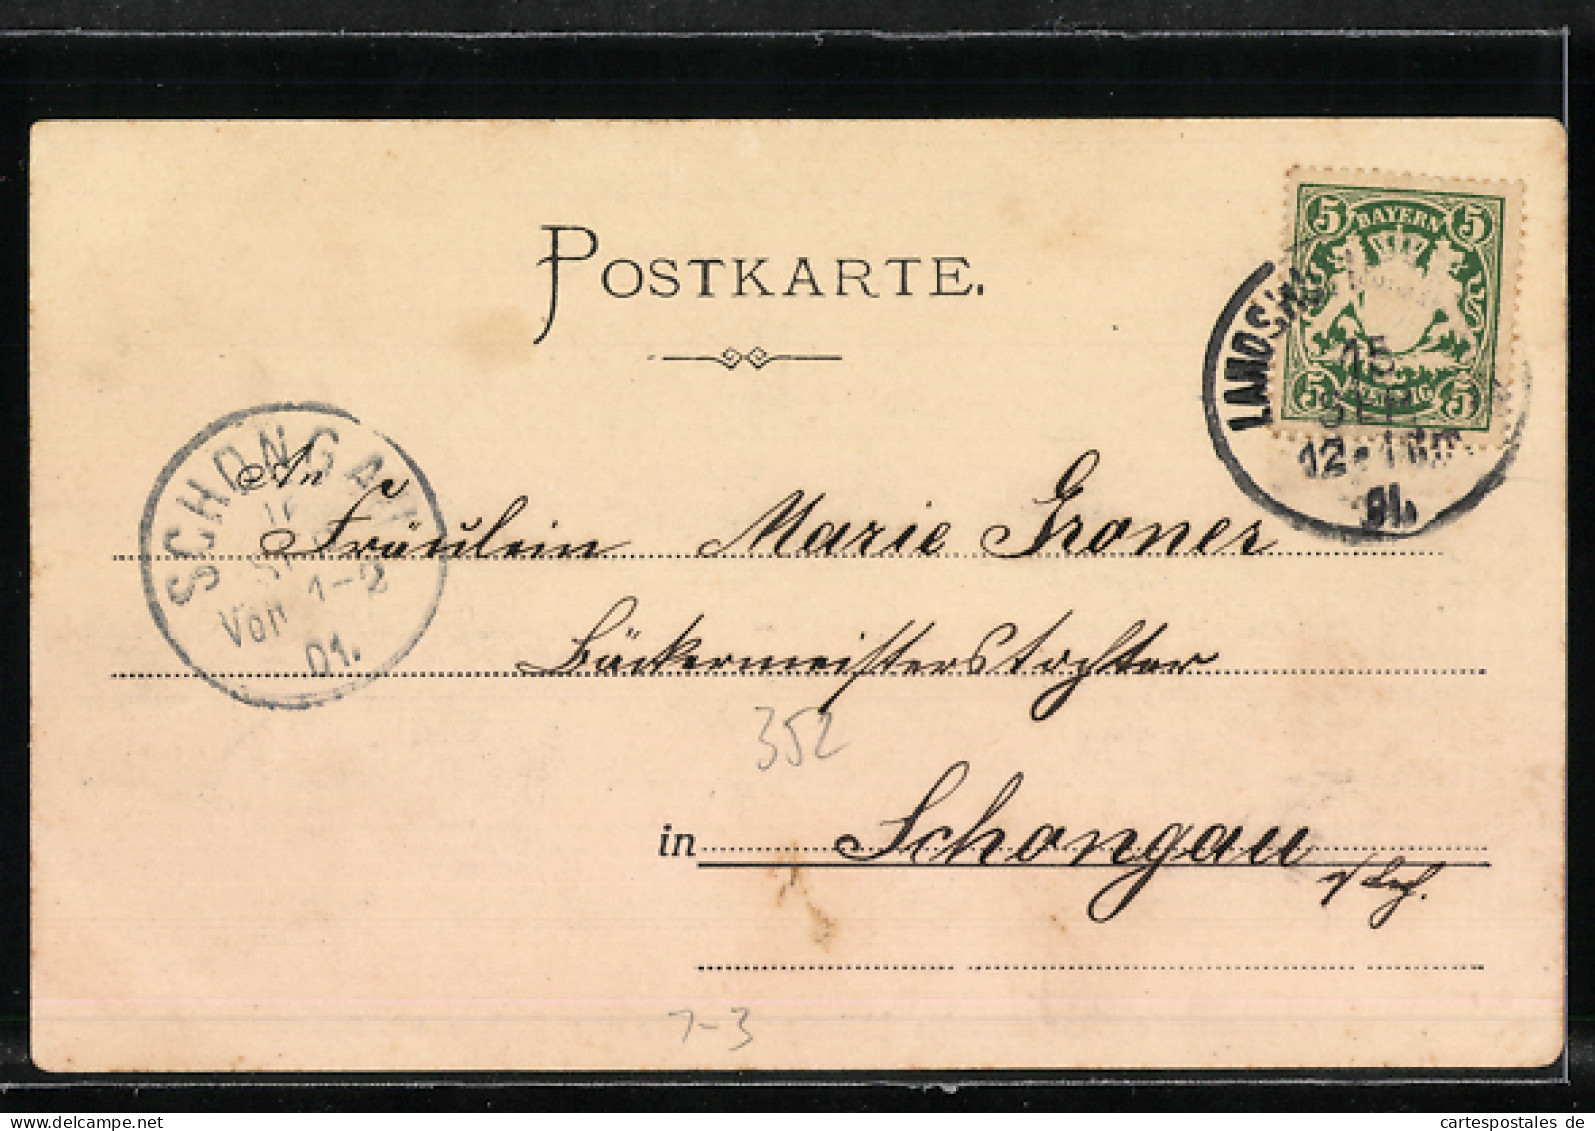 POSTKARTE.
5 BAYERN 5
5 5
15
SEP
12-1
01.
SCHONGAU
Vorm 1-2
01.
An
Fräulein Marie Groner
Bäckermeisterstochter
352
in Schongau
a/Lech.
7-3
cartespostales de